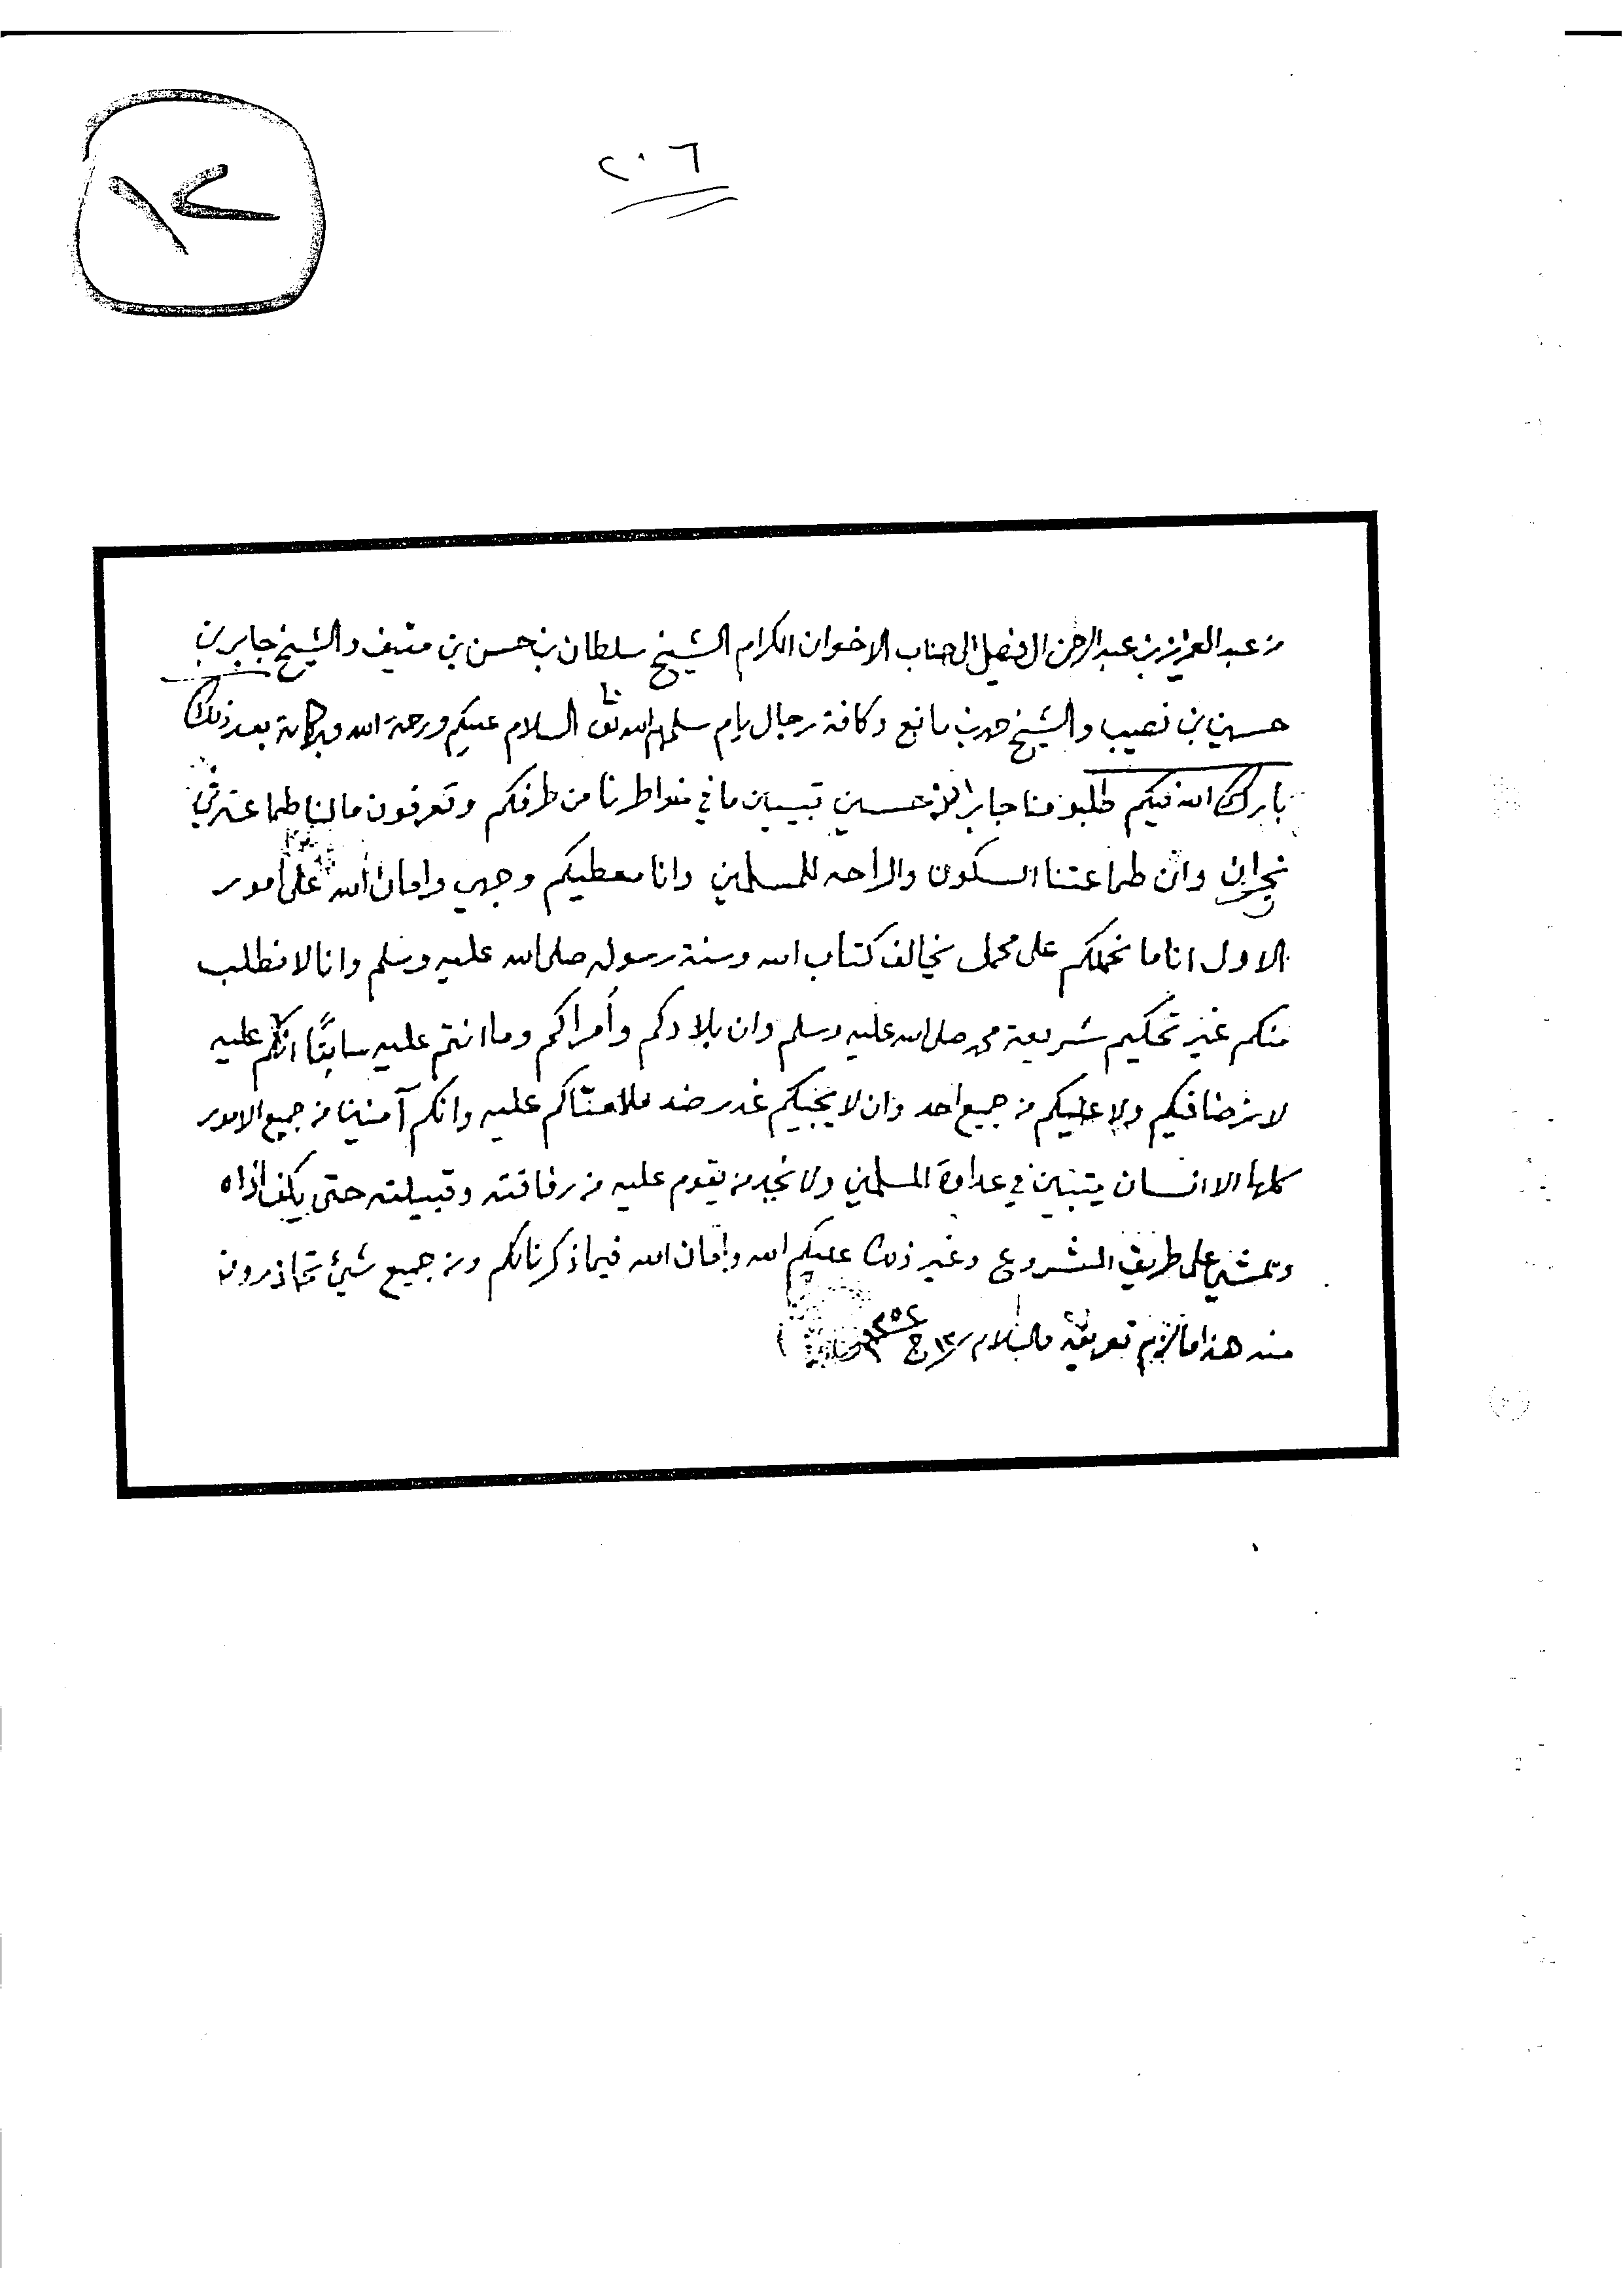 ١٢
٢٠٦
من عبد العزيز بن عبد الرحمن ال فيصل الى جناب الاخوان الكرام الشيخ سلطان بن حسن بن منيف والشيخ جابر بن
حسين بن نصيب والشيخ حمد بن مانع وكافة رجال يام سلمهم الله تعالى السلام عليكم ورحمة الله وبركاته بعد ذلك
بارك الله فيكم طلبو منا جابر حسين تبيين ما في خواطرنا من طرفكم وتعرفون مالنا طماعة في
نجران وان طماعتنا السكون والراحه للمسلمين وانا معطيكم وجهي وامان الله على امور
الاول انا ما نحملكم على محمل يخالف كتاب الله وسنة رسوله صلى الله عليه وسلم وانا لا نطلب
منكم غير تحكيم شريعة محمد صلى الله عليه وسلم وان بلادكم وأمراكم وما انتم عليه سابقًا انكم عليه
لا نرضا فيكم ولا عليكم من جميع احد وان لا يجيكم غدر ضد عليه وانكم آمنين من جميع الامور
كلها الا انسان يتبين في عداوة المسلمين ولا نجد من يقوم عليه من رفاقته وقبيلته حتى يكف اذاه
ونمشي على طريق المشروع وغير ذلك عليكم الله وامان الله فيما ذكرنا لكم ومن جميع شيئ تحاذرون
منه هذا ما لزم تعريفه والسلام ١٣٥٢